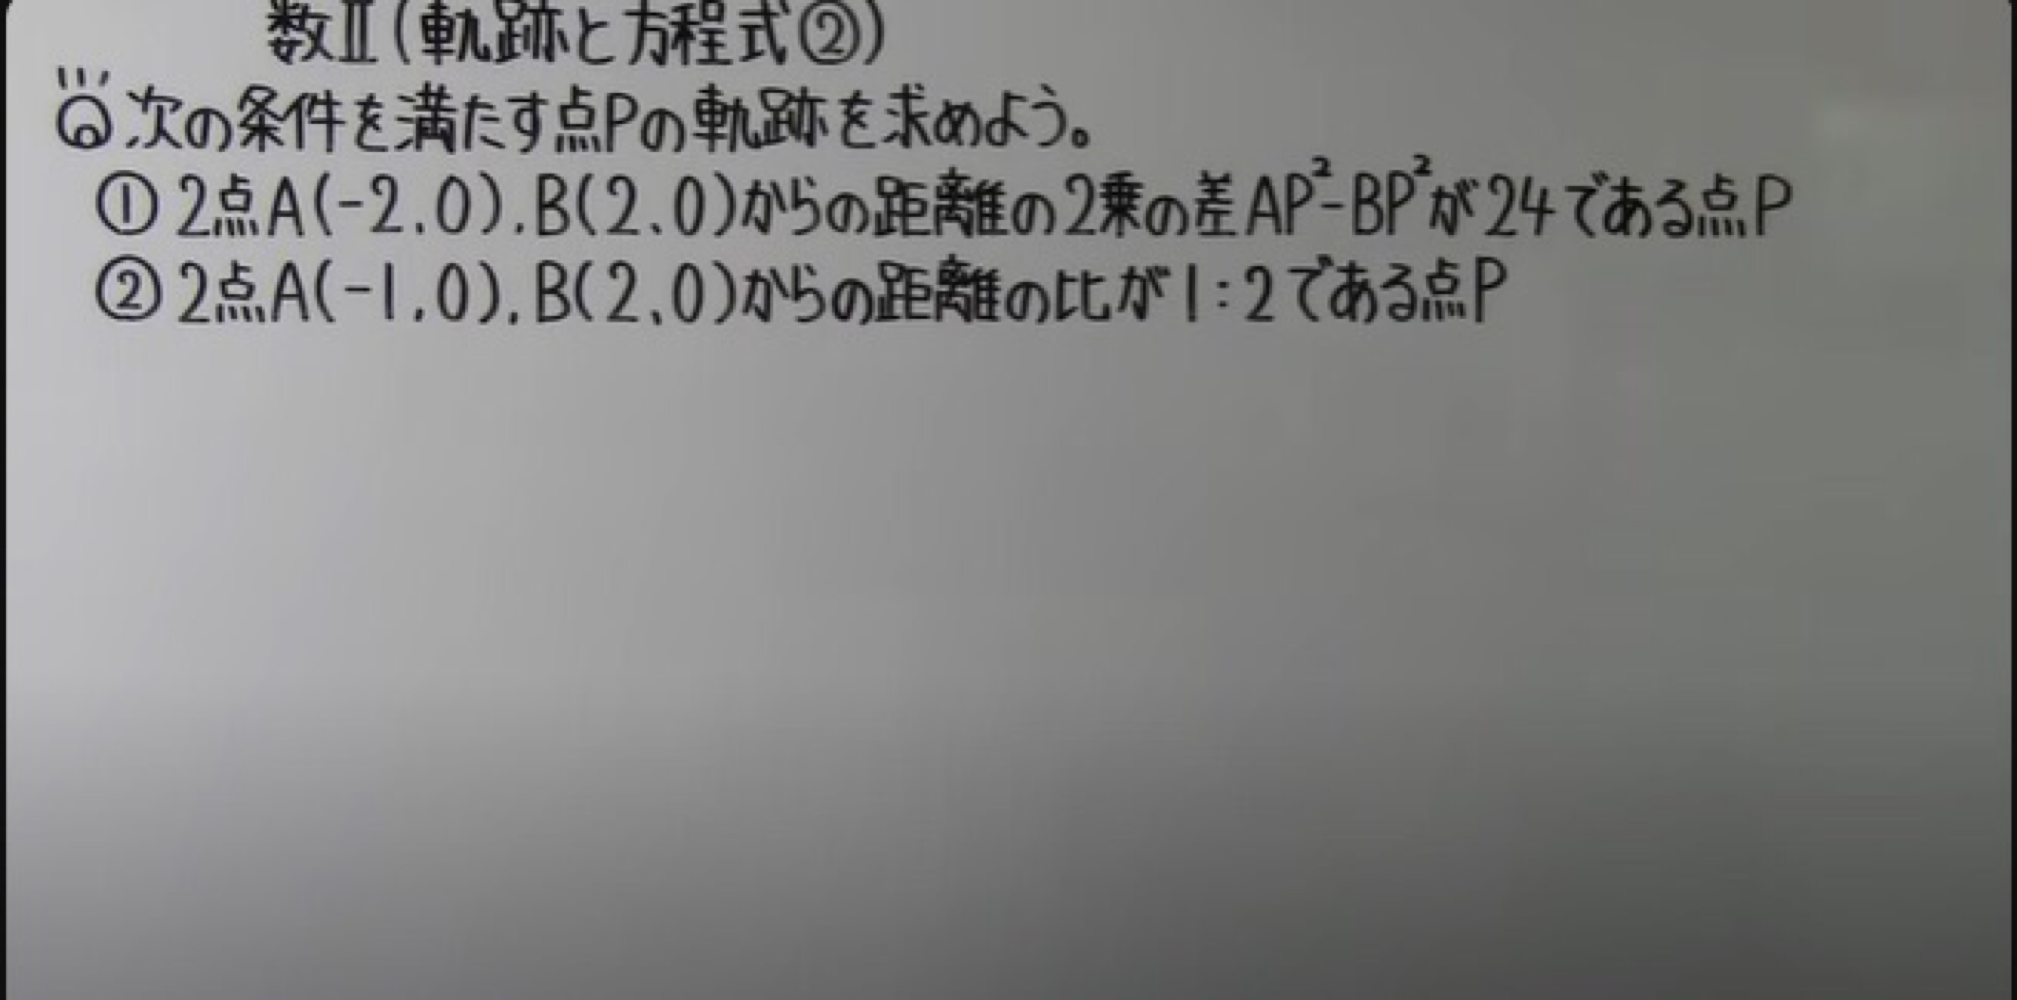 数Ⅱ(軌跡と方程式②)
Q.次の条件を満たす点Pの軌跡を求めよう。
①2点A(-2.0).B(2.0)からの距離の2乗の差AP²-BP²が24である点P
②2点A(-1.0).B(2.0)からの距離の比が1:2である点P